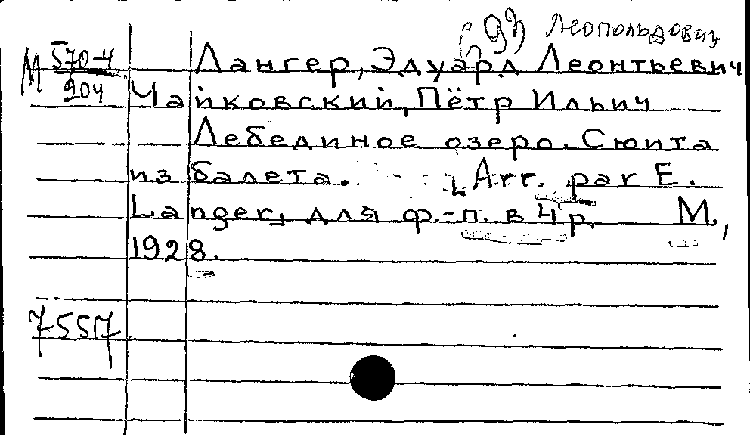 693 Леопольдович
М 570-4 Лангер, Эдуард Леонтьевич
204 Чайковский, Пётр Ильич
Лебединое озеро. Сюита
из балета. Arr. par E.
Langer, для ф.-п. в 4 р. М.,
1928.
7557